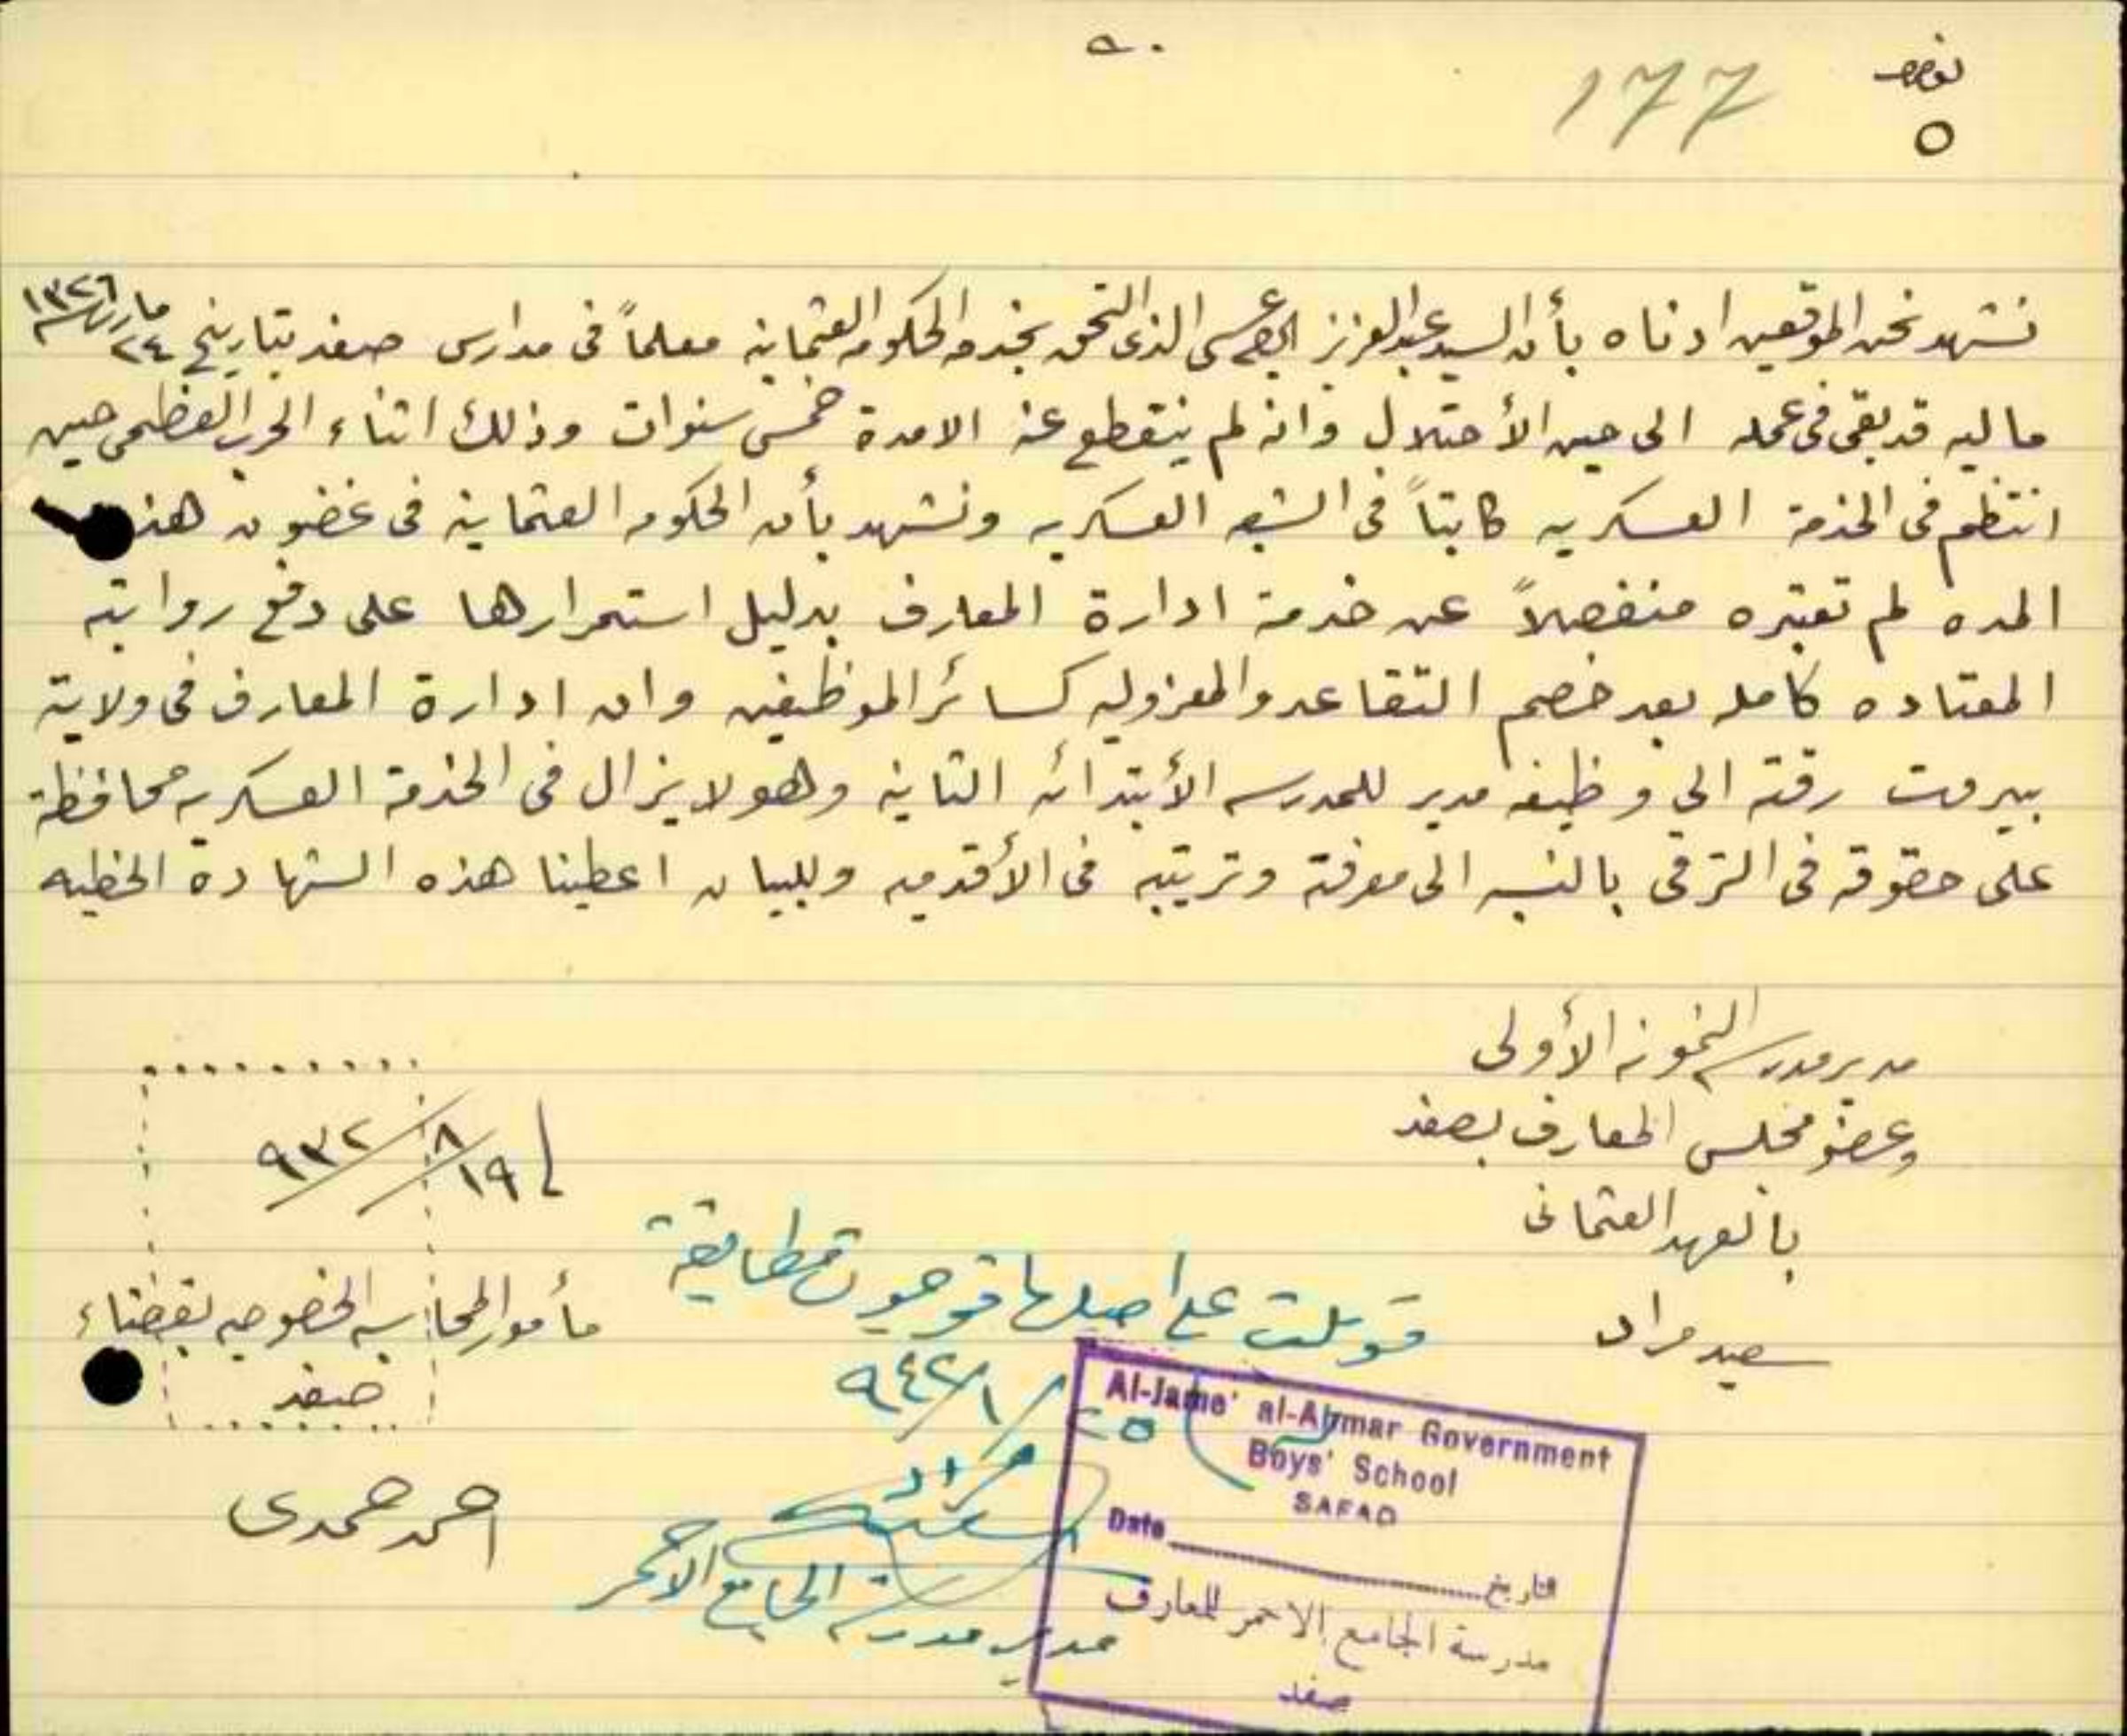 ٥٠
177
٥
نشهد نحن الموقعين ادناه بأن السيد عبد العزيز الذى التحق بخدمه الحكومه العثمانيه معلماً فى مدارس صفد بتاريخ ٢٤ مارت سنه ١٣٢٦
ماليه قد بقى فى عمله الى حين الأحتلال وانه لم ينقطع عنه الا مدة خمس سنوات وذلك اثناء الحرب العظمى حين
انتظم فى الخدمة العسكريه كاتباً فى الشعبه العسكريه ونشهد بأن الحكومه العثمانية فى غضون هذه
المده لم تعتبره منفصلاً عن خدمة ادارة المعارف بدليل استمرارها على دفع رواتبه
المعتاده كامله بعد خصم التقاعد والمعزوليه كسائر الموظفين وان ادارة المعارف فى ولاية
بيروت رقته الى وظيفه مدير للمدرسه الأبتدائيه الثانيه وهو لا يزال فى الخدمة العسكريه محافظة
على حقوقه فى الترقى بالنسبه الى معرفته وترتيبه فى الأقدميه وللبيان اعطينا هذه الشهادة الخطيه
مدير مدرسة النمونه الأولى
وعضو مجلس المعارف بصفد
بالعهد العثمانى
سعيد مراد
١٩/٨/٩٣٢
مأمور المحاسبه الخصوصيه بقضاء
صفد
احمد حمدى
قوبلت على اصلها فوجدت مطابقة
٢٥/١/٩٤٢
سعيد مراد
مدير مدرسة الجامع الاحمر
Al-Jame' al-Ahmar Government
Boys' School
SAFAD
Date التاريخ
مدرسة الجامع الاحمر للمعارف
صفد